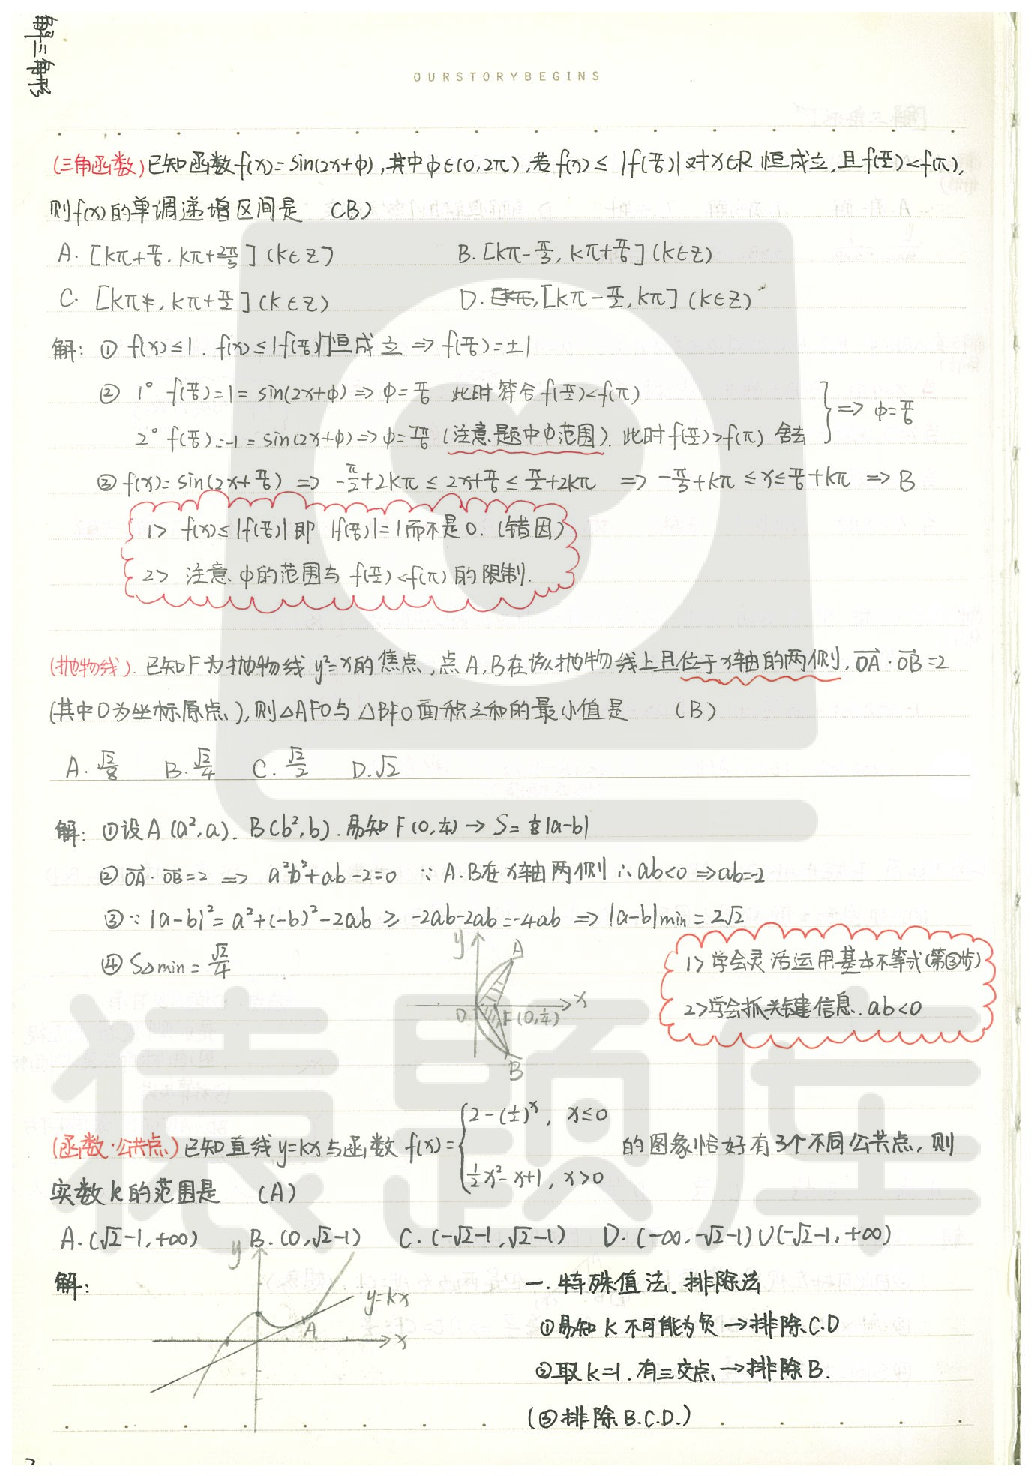 解三角形
OURSTORYBEGINS
(三角函数)已知函数f(x)=sin(2x+φ),其中φ∈(0,2π),若f(x)≤|f(π/6)|对x∈R恒成立,且f(π/2)<f(π),
则f(x)的单调递增区间是 (B)
A.[kπ+π/6,kπ+2π/3](k∈Z) B.[kπ-π/3,kπ+π/6](k∈Z)
C.[kπ,kπ+π/2](k∈Z) D.[kπ-π/2,kπ](k∈Z)
解:①f(x)≤1.f(x)≤|f(π/6)|恒成立⇒f(π/6)=±1
② 1°f(π/6)=1=sin(2x+φ)⇒φ=π/6 此时符合f(π/2)<f(π)
2°f(π/6)=-1=sin(2x+φ)⇒φ=7π/6(注意题中φ范围).此时f(π/2)>f(π) 舍去 ⇒φ=π/6
③f(x)=sin(2x+π/6)⇒-π/2+2kπ≤2x+π/6≤π/2+2kπ ⇒-π/3+kπ≤x≤π/6+kπ ⇒B
1> f(x)≤|f(π/6)|即 |f(π/6)|=1而不是0.(错因)
2> 注意φ的范围与f(π/2)<f(π)的限制.
(抛物线).已知F为抛物线y²=x的焦点,点A,B在该抛物线上且位于x轴的两侧,OA·OB=2
(其中O为坐标原点),则△AFO与△BFO面积之和的最小值是 (B)
A.√2/8 B.√2/4 C.√2/2 D.√2
解:①设A(a²,a).B(b²,b).易知F(0,1/4)→S=1/8|a-b|
②OA·OB=2⇒a²b²+ab-2=0 ∵A.B在x轴两侧∴ab<0⇒ab=-2
③∵|a-b|²=a²+(-b)²-2ab≥-2ab-2ab=-4ab⇒|a-b|min=2√2
④S△min=√2/4
y
A
O
F(0,1/4)
x
B
1>学会灵活运用基本不等式(第③步)
2>学会抓关键信息.ab<0
(函数·公共点)已知直线y=kx与函数f(x)={2-(1/2)^x, x≤0
1/2x²-x+1, x>0 的图象恰好有3个不同公共点,则
实数k的范围是 (A)
A.(√2-1,+∞) B.(0,√2-1) C.(-√2-1,√2-1) D.(-∞,-√2-1)∪(-√2-1,+∞)
解:
y
y=kx
A
x
一.特殊值法.排除法
①易知k不可能为负→排除C.D
②取k=1.有三交点→排除B.
(③排除B.C.D.)